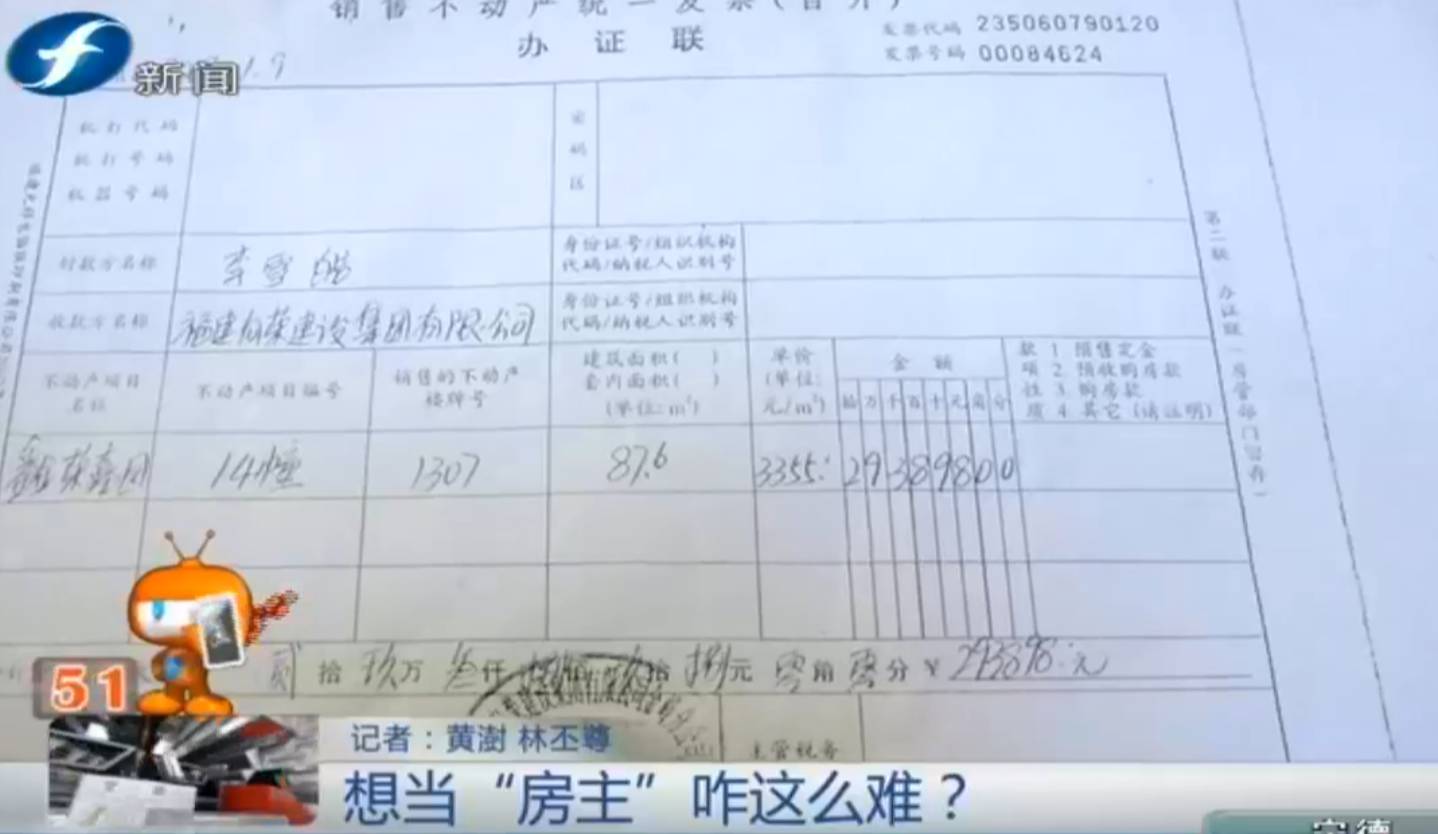 销售不动产统一发票(自开)
办 证 联
发票代码 235060790120
发票号码 00084624
新闻
1.9
机打代码
机打号码
机器号码
密码区
付款方名称
李雪皓
身份证号/组织机构
代码/纳税人识别号
收款方名称
建设集团有限公司
身份证号/组织机构
代码/纳税人识别号
不动产项目
名称
不动产项目编号
销售的不动产
楼牌号
建筑面积( )
套内面积( )
(单位:m²)
单价
(单位:
元/m²)
金 额
拾万千百十元角分
款项性质
1. 预售定金
2. 预收购房款
3. 购房款
4. 其它(请证明)
14幢
1307
87.6
3355.
29389800
贰拾玖万叁仟捌佰玖拾捌元零角零分 ¥293898.元
第二联 办证联(房管部门留存)
主管税务
51
记者:黄澍 林丕尊
想当“房主”咋这么难?
宁德